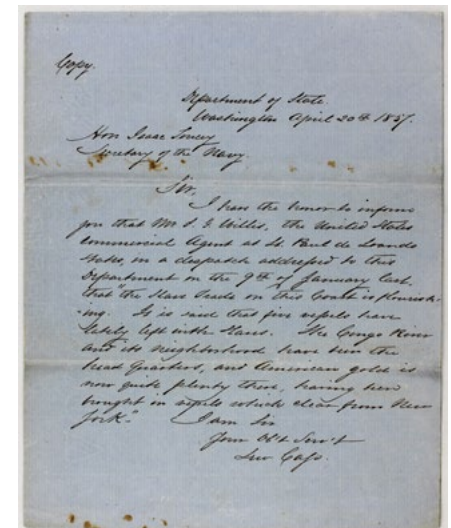 Copy.
Department of State.
Washington April 20th 1857.
Hon Isaac Toucey
Secretary of the Navy.
Sir,
I have the honor to inform
you that Mr J. G. Willis, the United States
commercial Agent at St. Paul de Loando
states, in a despatch addressed to this
Department on the 9th of January last,
that "the Slave Trade on this Coast is flourish-
ing. It is said that five vessels have
lately left with Slaves. The Congo River
and its neighborhood have been the
head Quarters, and American gold is
now quite plenty there, having been
brought in vessels which clear from New
York."
I am Sir
Your Ob't Serv't
Lew Cass.